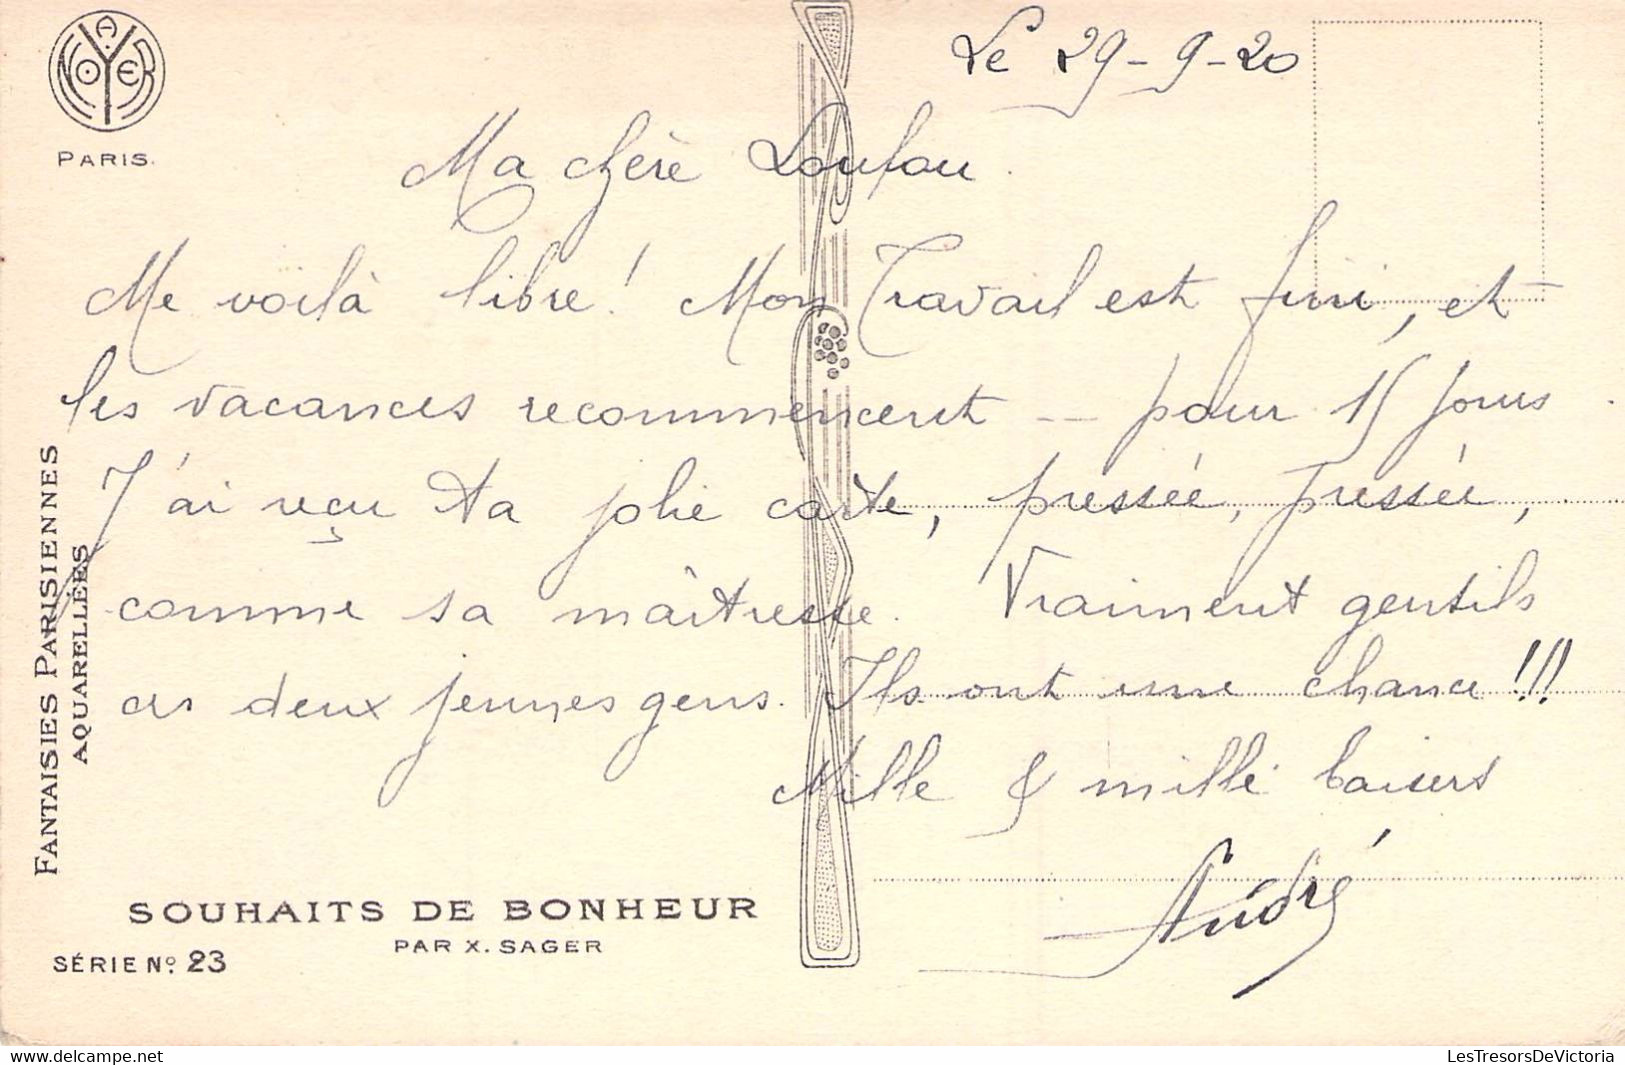 A.
NOYER
PARIS.
Le 29-9-20
Ma chère Loulou.
Me voilà libre! Mon Travail est fini, et
les vacances recommencent -- pour 15 jours.
J'ai reçu ta jolie carte, pressée, pressée,
comme sa maîtresse. Vraiment gentils
ces deux jeunes gens. Ils ont une chance!!!
Mille & mille baisers
André
FANTAISIES PARISIENNES
AQUARELLÉES
SOUHAITS DE BONHEUR
PAR X. SAGER
SÉRIE No. 23
delcampe.net
LesTresorsDeVictoria